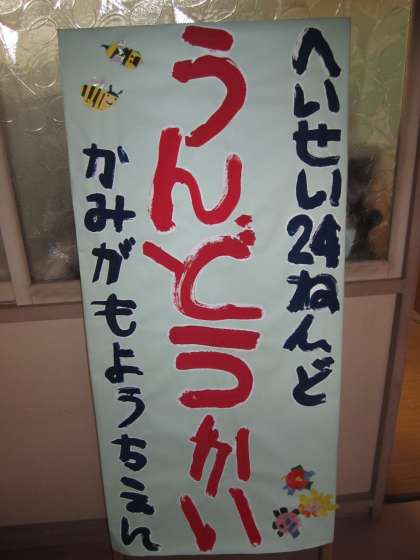 へいせい24ねんど
うんどうかい
かみがもようちえん